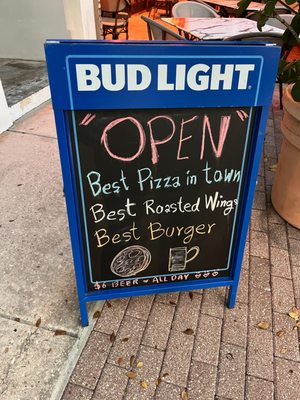 BUD LIGHT
"OPEN"
Best Pizza in town
Best Roasted Wings
Best Burger
$6 BEER ALL DAY